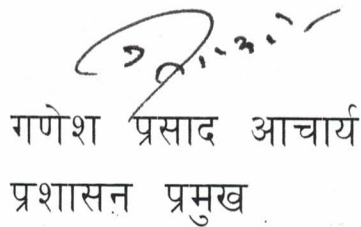 गणेश प्रसाद आचार्य
प्रशासन प्रमुख